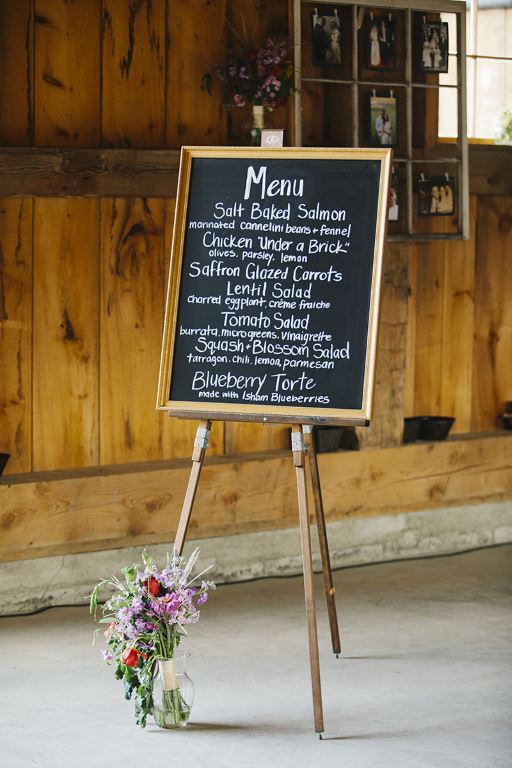 Menu
Salt Baked Salmon
marinated cannelini beans + fennel
Chicken "Under a Brick"
olives, parsley, lemon
Saffron Glazed Carrots
Lentil Salad
charred eggplant, créme fraiche
Tomato Salad
burrata, microgreens, vinaigrette
Squash + Blossom Salad
tarragon, chili, lemon, parmesan
Blueberry Torte
made with Isham Blueberries